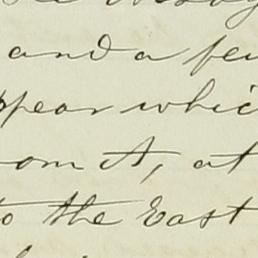 and a few
ppear which
om it, at
to the East